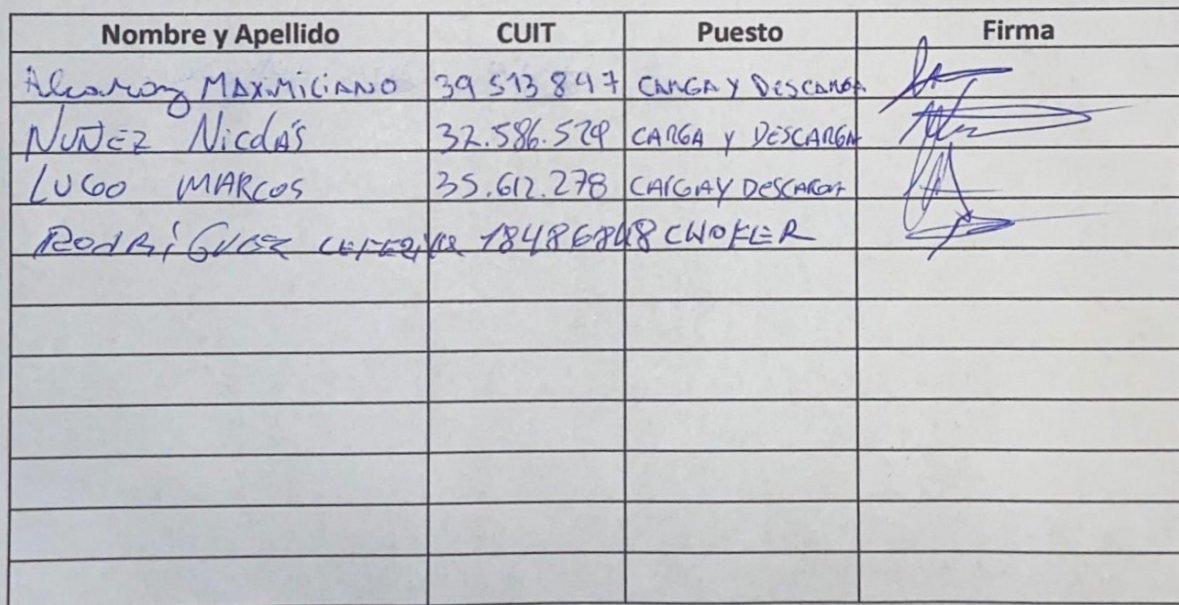 Nombre y Apellido CUIT Puesto Firma
MAXIMILIANO 39 513 847 CARGA Y DESCARGA
NUÑEZ Nicolás 32.586.529 CARGA Y DESCARGA
LUGO MARCOS 35.612.278 CARGA Y DESCARGA
RODRÍGUEZ CEFERINO 18486848 CHOFER